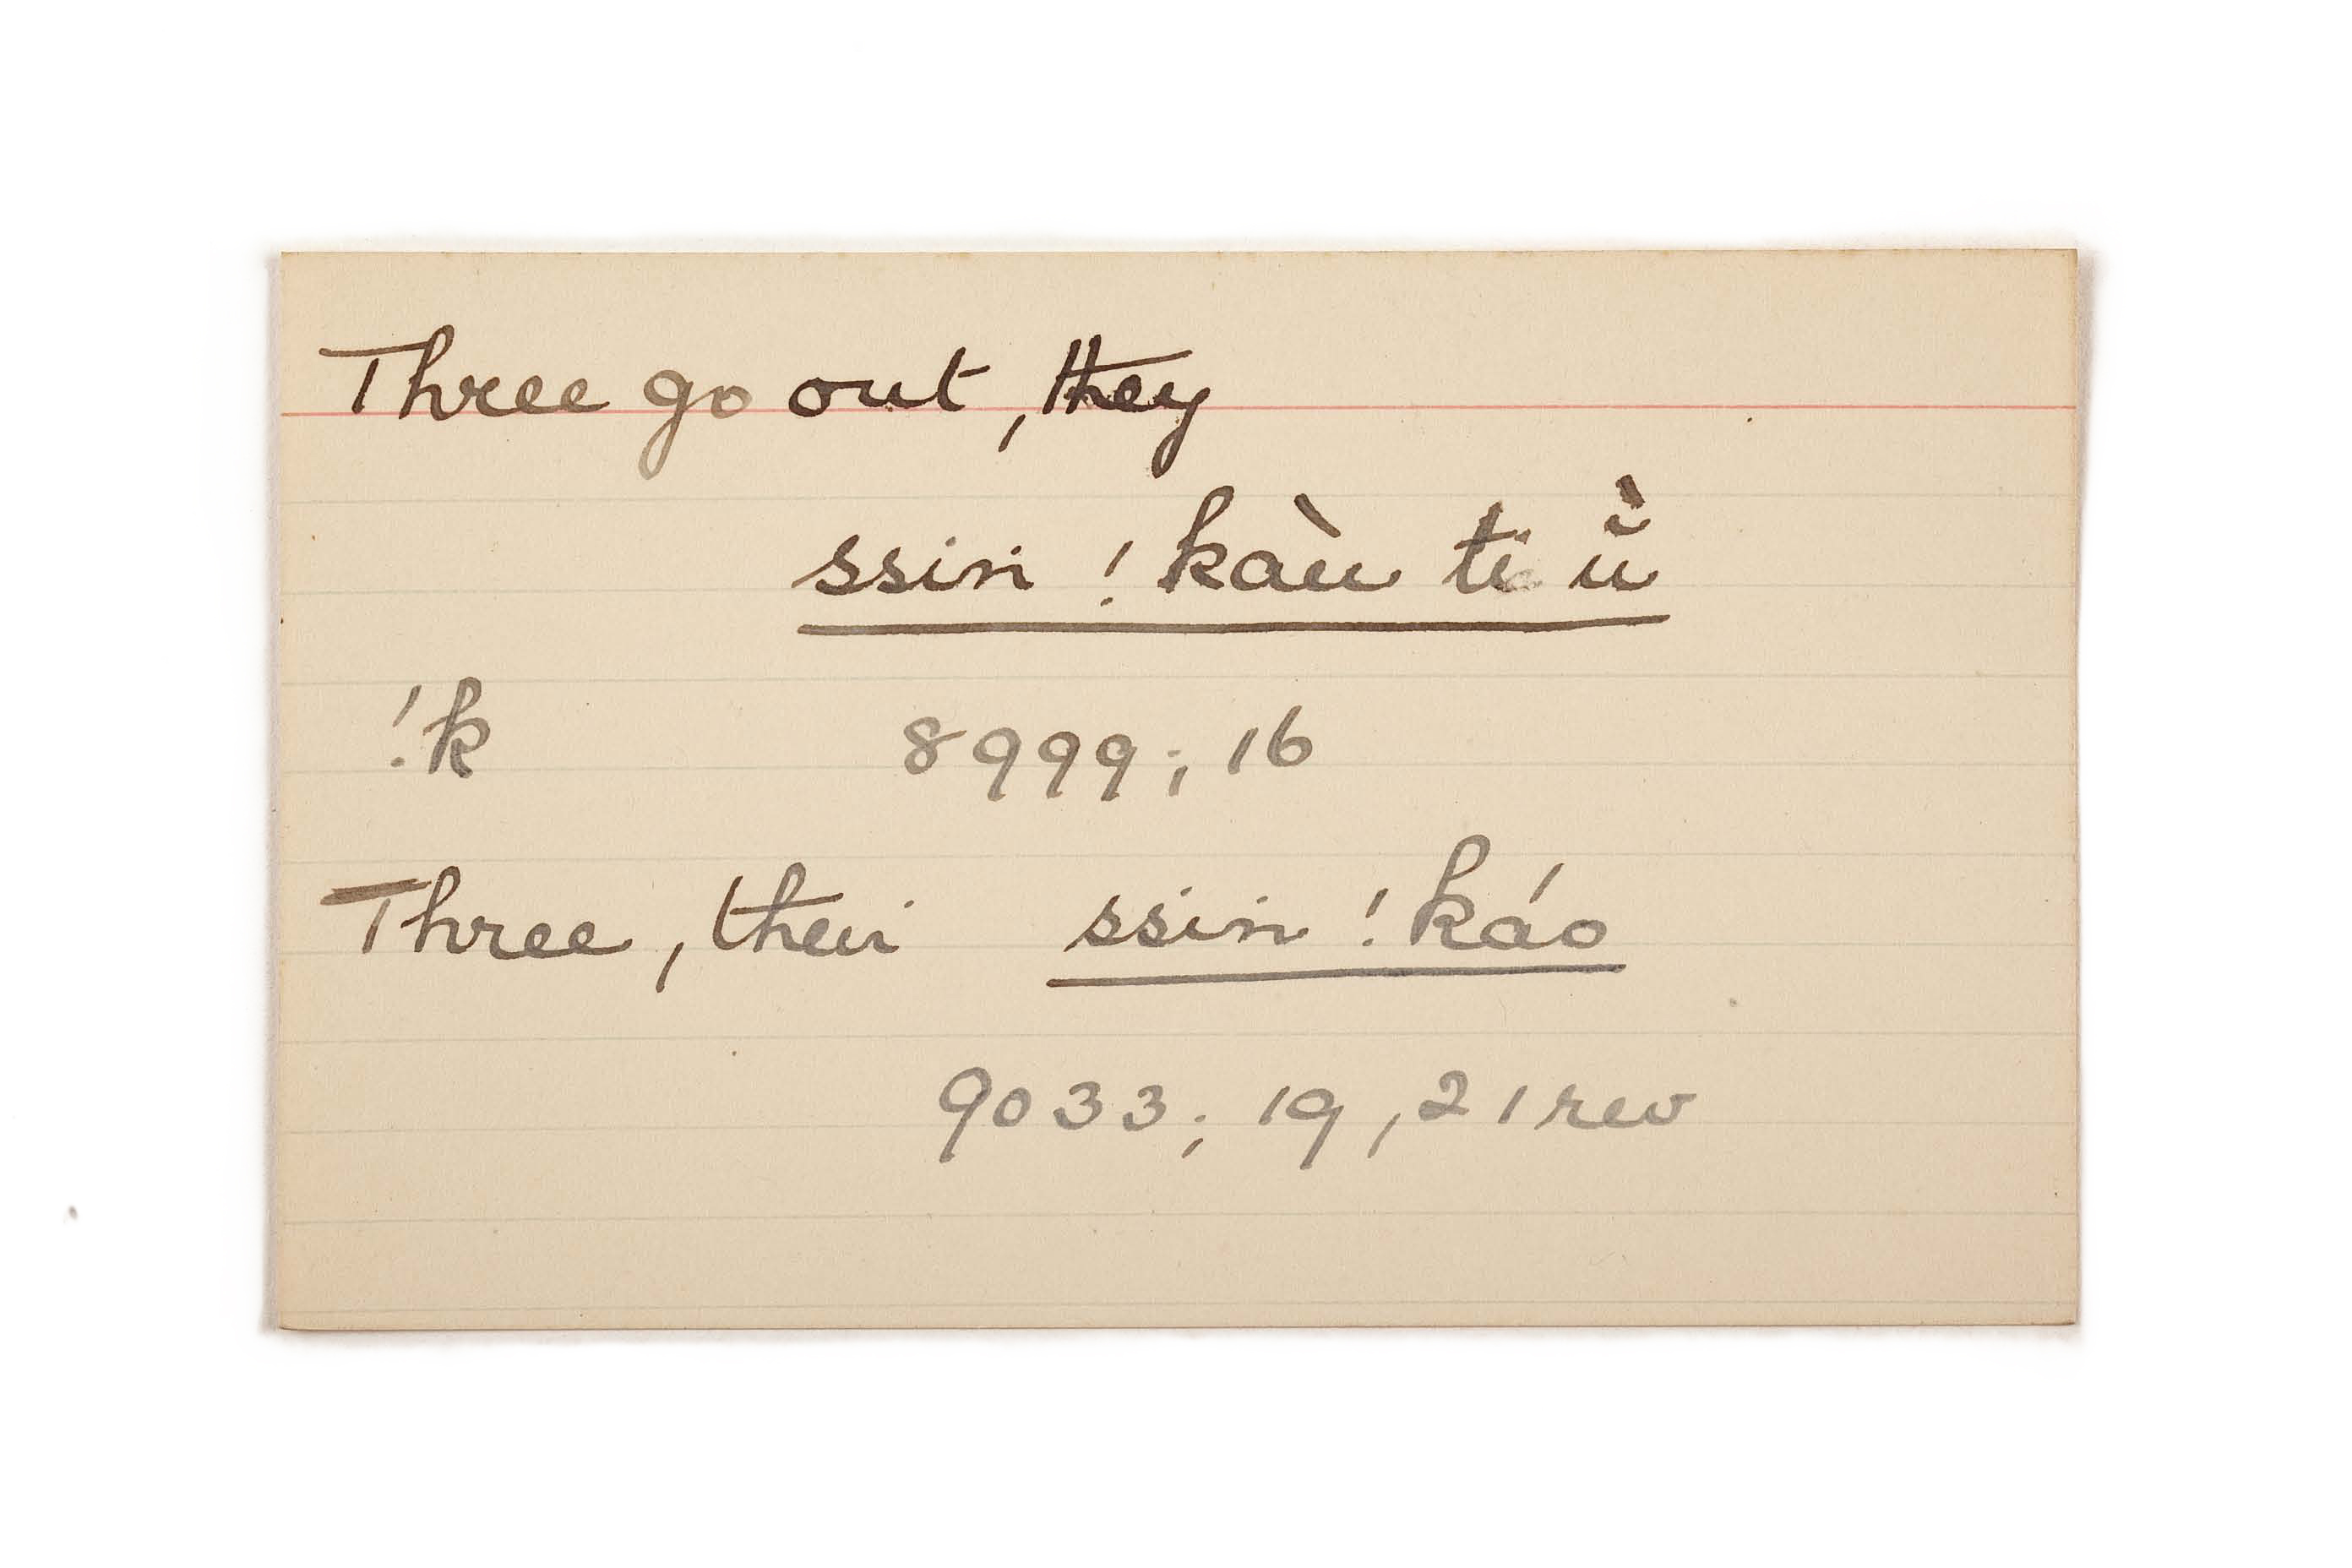 Three go out, they
ssin !kàu ti ŭ̀
!k 8999; 16
Three, their ssin !káo
9033; 19, 21 rev